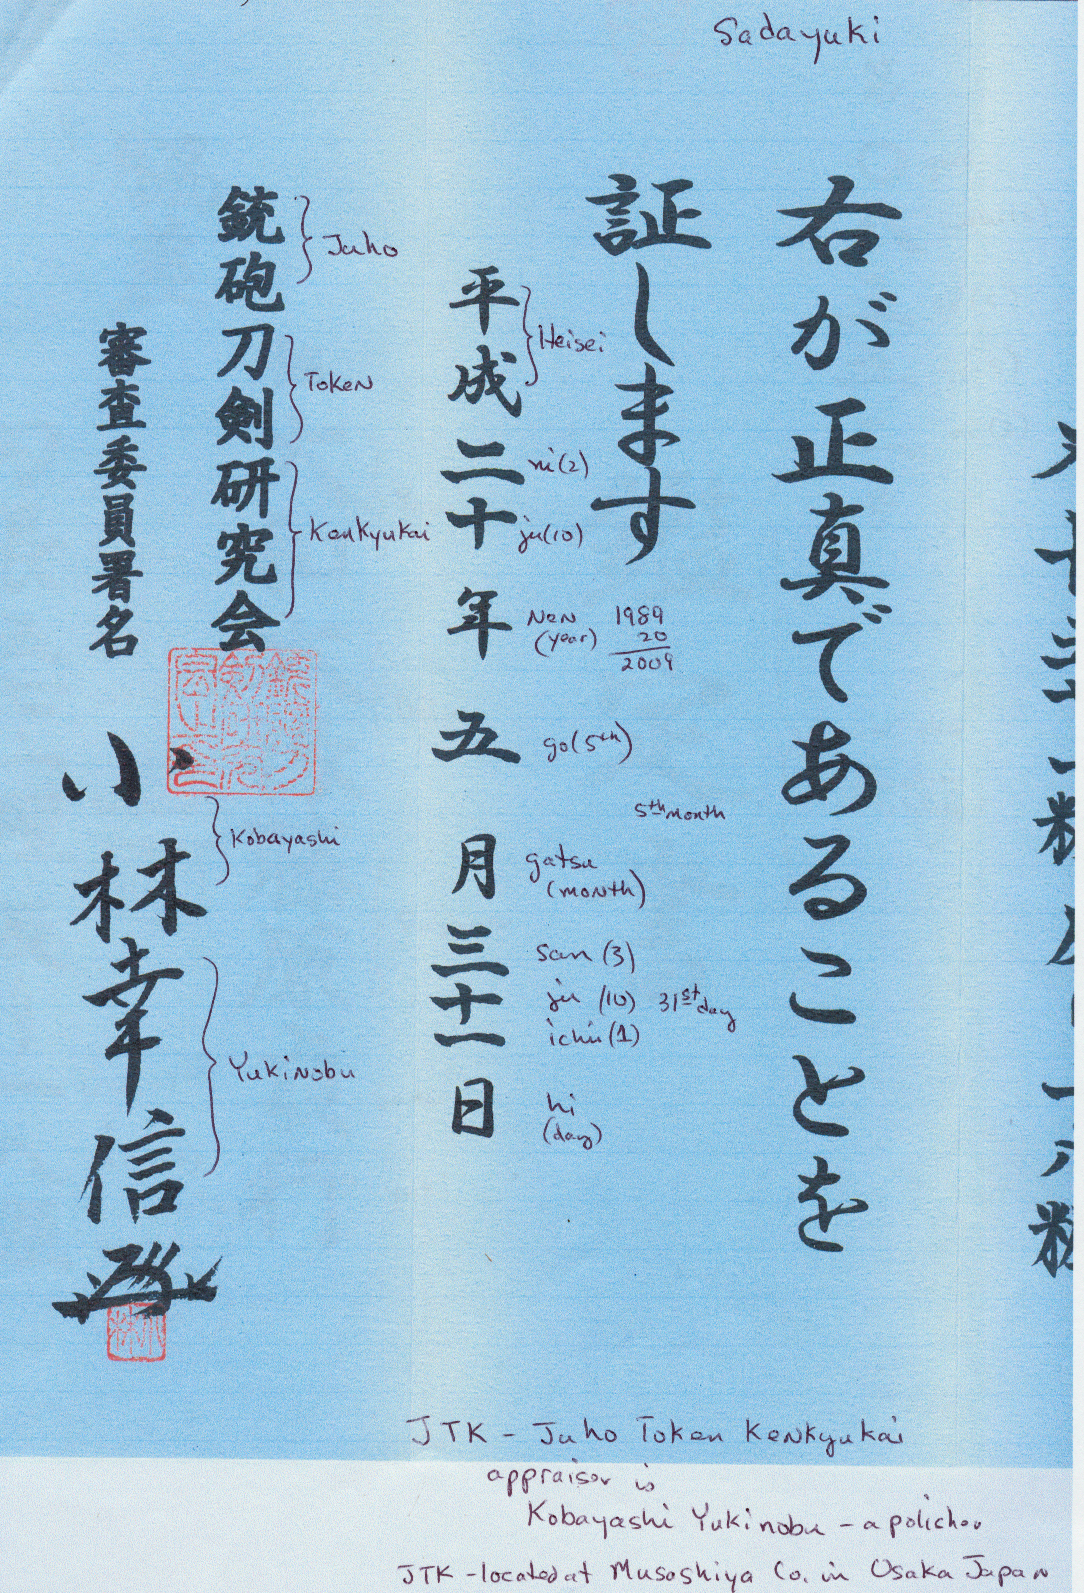 Sadayuki
右が正真であることを
証します
平成二十年 五 月三十一日
Heisei
ni(2)
ju(10)
Nen
(year)
1989
20
2009
go(5th)
5th month
gatsu
(month)
san (3)
ju (10)
ichi (1)
31st day
hi
(day)
銃砲刀剣研究会
Juho
Token
Kenkyukai
審査委員署名
小林幸信
Kobayashi
Yukinobu
JTK - Juho Token Kenkyukai
appraiser is
Kobayashi Yukinobu - a polisher
JTK - located at Musashiya Co. in Osaka Japan